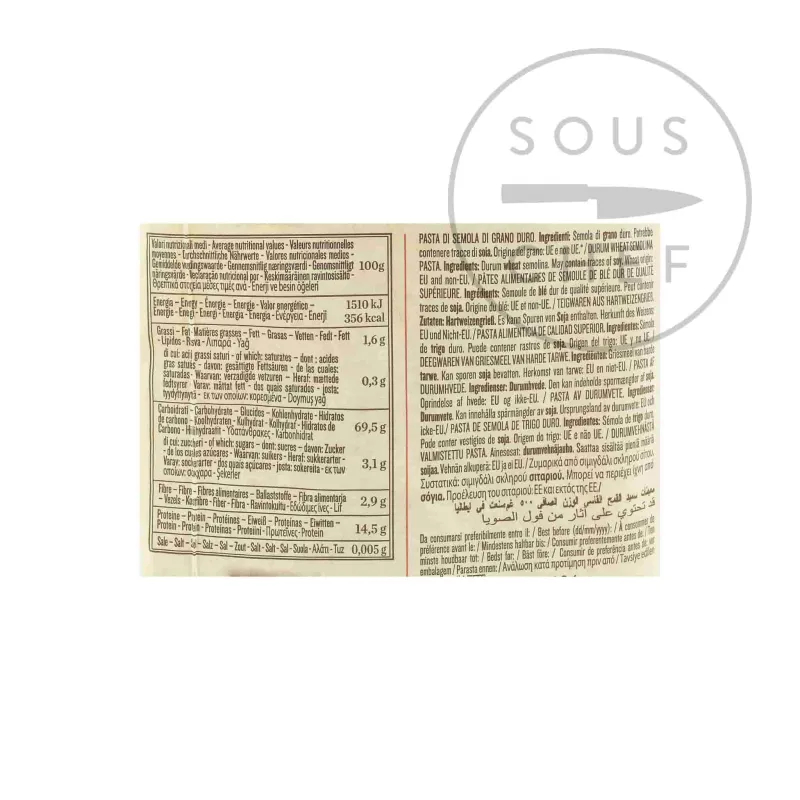 SOUS
CHEF
Valori nutrizionali medi - Average nutritional values - Valeurs nutritionnelles
moyennes - Durchschnittliche Nährwerte - Valores nutricionales medios -
Gemiddelde voedingswaarde - Gennemsnitlig næringsværdi - Genomsnittligt
näringsvärde - Declaração nutricional por - Keskimääräinen ravintosisältö -
Θρεπτικά στοιχεία μέσες τιμές ανά - Enerji ve besin öğeleri
100g
Energia – Energy – Énergie - Energie - Valor energético –
Energie - Energi - Energi - Energia - Energia - Ενέργεια - Enerji
1510 kJ
356 kcal
Grassi - Fat - Matières grasses - Fett - Grasas - Vetten - Fedt - Fett
- Lípidos - Rasva - Λιπαρά - Yağ
1,6 g
di cui: acidi grassi saturi - of which: saturates – dont : acides
gras saturés - davon: gesättigte Fettsäuren - de las cuales:
saturadas - Waarvan: verzadigde vetzuren - Heraf: mættede
fedtsyrer - Varav: mättat fett - dos quais saturados - josta:
tyydyttynyttä - εκ των οποίων: κορεσμένα - Doymuş yağ
0,3 g
Carboidrati - Carbohydrate - Glucides - Kohlenhydrate - Hidratos
de carbono - Koolhydraten - Kulhydrat - Kolhydrat - Hidratos de
Carbono - Hiilihydraatit - Υδατάνθρακες - Karbonhidrat
69,5 g
di cui: zuccheri - of which: sugars – dont: sucres – davon: Zucker
- de los cuales azúcares - Waarvan: suikers - Heraf: sukkerarter -
Varav: sockerarter - dos quais açúcares - josta: sokereita - εκ των
οποίων: σάκχαρα - Şekerler
3,1 g
Fibre – Fibre – Fibres alimentaires - Ballaststoffe – Fibra alimentaria
– Vezels - Kostfibre - Fiber - Fibra - Ravintokuitu - Εδώδιμες ίνες - Lif
2,9 g
Proteine – Protein – Protéines – Eiweiß – Proteínas – Eiwitten –
Protein - Protein - Proteínas - Proteiini - Πρωτεΐνες - Protein
14,5 g
Sale - Salt - Sel - Salz - Sal - Zout - Salt - Salt - Sal - Suola - Αλάτι - Tuz
0,005 g
PASTA DI SEMOLA DI GRANO DURO. Ingredienti: Semola di grano duro. Potrebbe
contenere tracce di soia. Origine del grano: UE e non UE.* / DURUM WHEAT SEMOLINA
PASTA. Ingredients: Durum wheat semolina. May contain traces of soy. Wheat origin:
EU and non-EU. / PÂTES ALIMENTAIRES DE SEMOULE DE BLÉ DUR DE QUALITÉ
SUPÉRIEURE. Ingrédients: Semoule de blé dur de qualité supérieure. Peut contenir
traces de soja. Origine du blé: UE et non-UE. / TEIGWAREN AUS HARTWEIZENGRIEß.
Zutaten: Hartweizengrieß. Es kann Spuren von Soja enthalten. Herkunft des Weizens:
EU und Nicht-EU. / PASTA ALIMENTICIA DE CALIDAD SUPERIOR. Ingredientes: Sémola
de trigo duro. Puede contener rastros de soja. Origen del trigo: UE y no UE. /
DEEGWAREN VAN GRIESMEEL VAN HARDE TARWE. Ingrediënten: Griesmeel van harde
tarwe. Kan sporen soja bevatten. Herkomst van tarwe: EU en niet-EU. / PASTA AF
DURUMHVEDE. Ingredienser: Durumhvede. Den kan indeholde spormængder af soja.
Oprindelse af hvede: EU og ikke-EU. / PASTA AV DURUMVETE. Ingredienser:
Durumvete. Kan innehålla spårmängder av soja. Ursprungsland av durumvete: EU och
icke-EU. / PASTA DE SEMOLA DE TRIGO DURO. Ingredientes: Sêmola de trigo duro.
Pode conter vestígios de soja. Origem do trigo: UE e não UE. / DURUMVEHNÄSTÄ
VALMISTETTU PASTA. Ainesosat: durumvehnäjauho. Saattaa sisältää pieniä määriä
soijaa. Vehnän alkuperä: EU ja ei EU. / Ζυμαρικά από σιμιγδάλι σκληρού σίτου.
Συστατικά: σιμιγδάλι σκληρού σιταριού. Μπορεί να περιέχει ίχνη από
σόγια. Προέλευση του σιταριού: ΕΕ και εκτός της ΕΕ /
قد تحتوي على آثار من فول الصويا
Da consumarsi preferibilmente entro il: / Best before (dd/mm/yyyy): / À consommer de
préférence avant le: / Mindestens haltbar bis: / Consumir preferentemente antes de: / Ten
minste houdbaar tot: / Bedst før: / Bäst före: / Consumir de preferência antes de: ver
embalagem / Parasta ennen: / Ανάλωση κατά προτίμηση πριν από / Tavsiye edilen